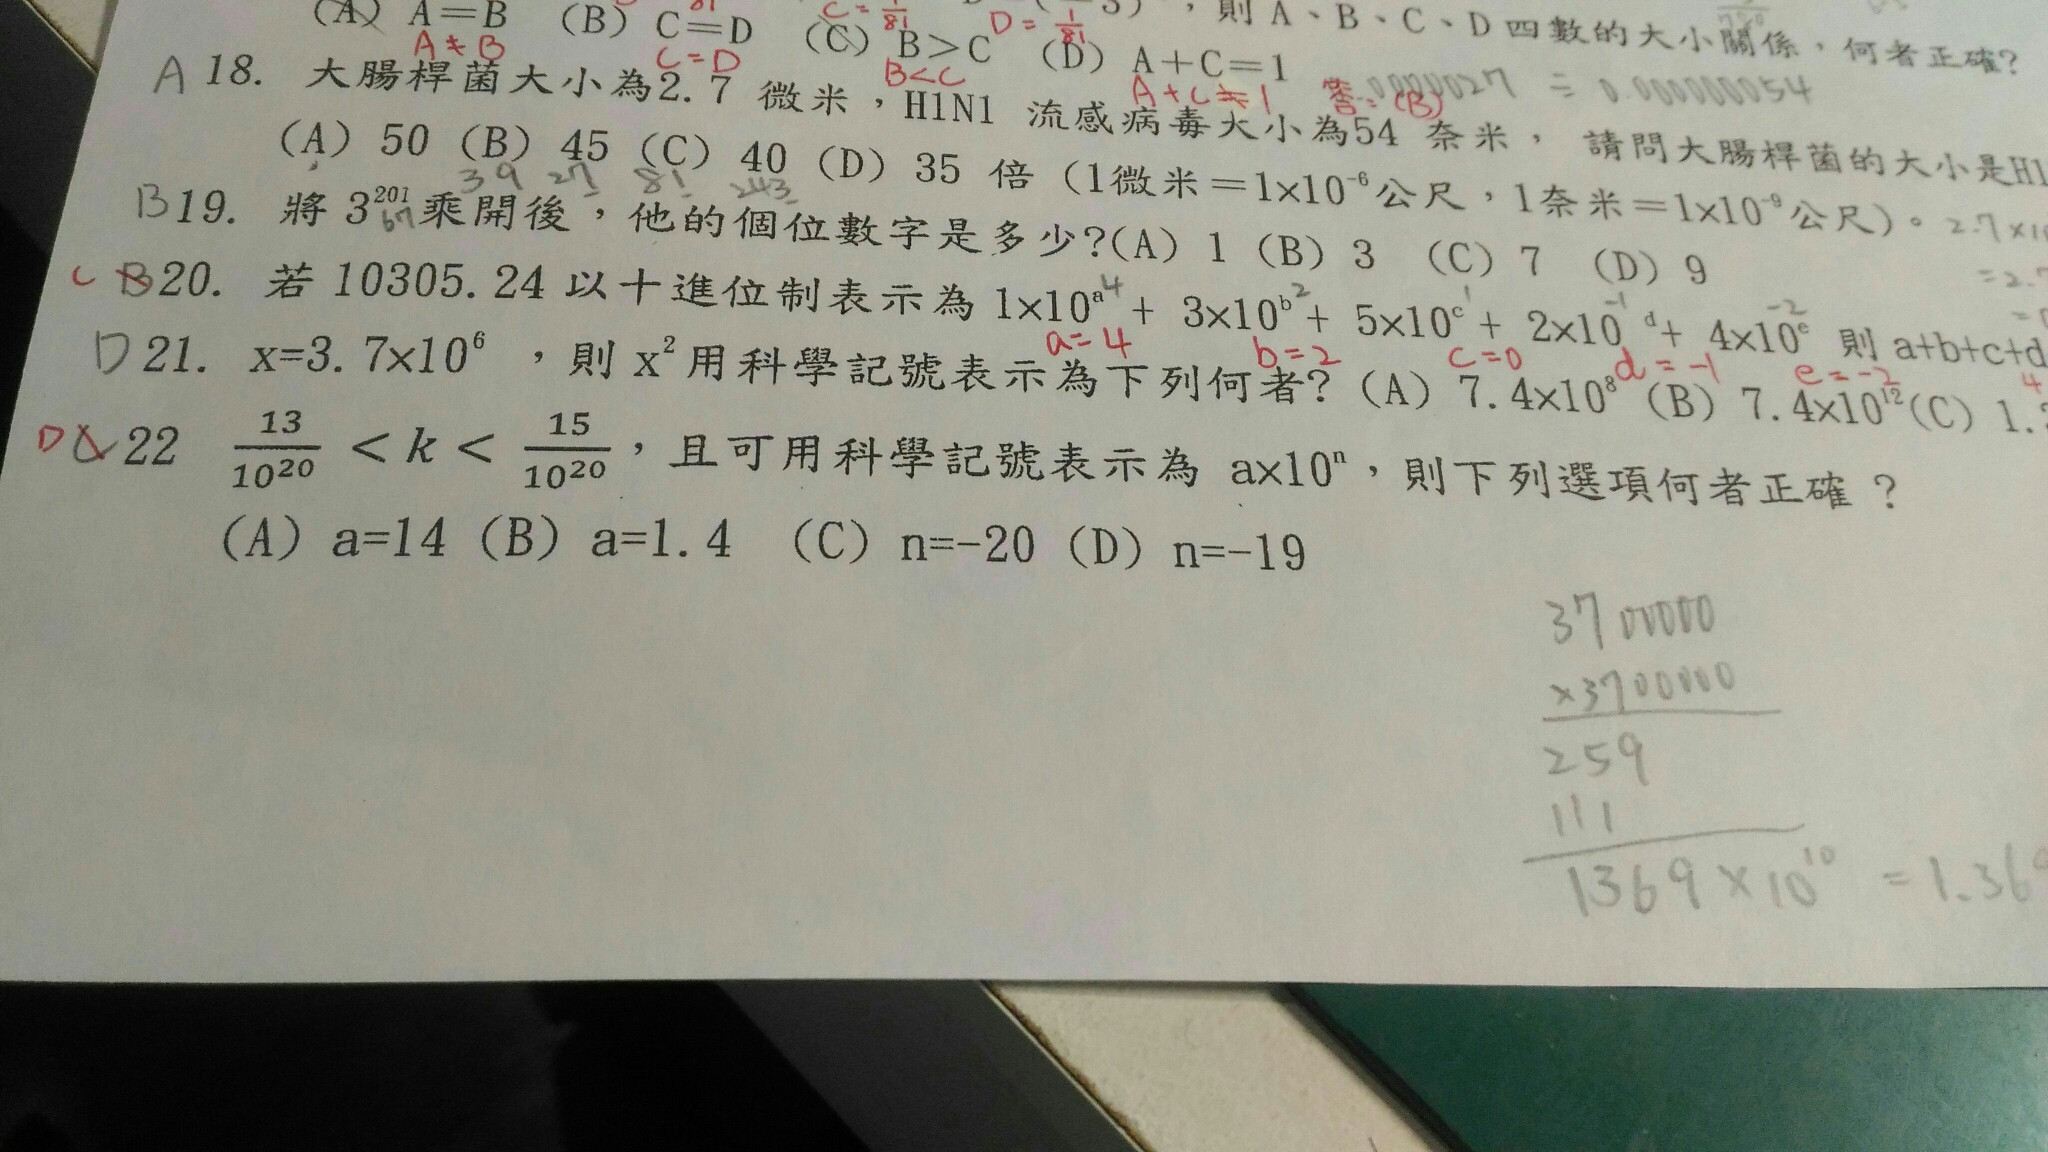 (A) A=B (B) C=D (C) B>C (D) A+C=1 ,則 A、B、C、D 四數的大小關係,何者正確?
C=1/81 D=1/81
A≠B C=D B<C A+C≠1 答:(B)
A 18. 大腸桿菌大小為2.7 微米,H1N1 流感病毒大小為54 奈米, 請問大腸桿菌的大小是H1
= 0.000000054
(A) 50 (B) 45 (C) 40 (D) 35 倍 (1微米=1×10⁻⁶公尺,1奈米=1×10⁻⁹公尺)。
3 9 27 81 243
B 19. 將 3²⁰¹乘開後,他的個位數字是多少?(A) 1 (B) 3 (C) 7 (D) 9
67
C B 20. 若 10305.24 以十進位制表示為 1×10ᵃ + 3×10ᵇ + 5×10ᶜ + 2×10ᵈ + 4×10ᵉ 則 a+b+c+d
4 2 1 -1 -2
a=4 b=2 c=0 d=-1 e=-2
D 21. x=3.7×10⁶ ,則 x² 用科學記號表示為下列何者? (A) 7.4×10⁸ (B) 7.4×10¹² (C) 1.
D 22 13/10²⁰ < k < 15/10²⁰,且可用科學記號表示為 a×10ⁿ,則下列選項何者正確?
(A) a=14 (B) a=1.4 (C) n=-20 (D) n=-19
3700000
×3700000
259
111
1369×10¹⁰ = 1.36